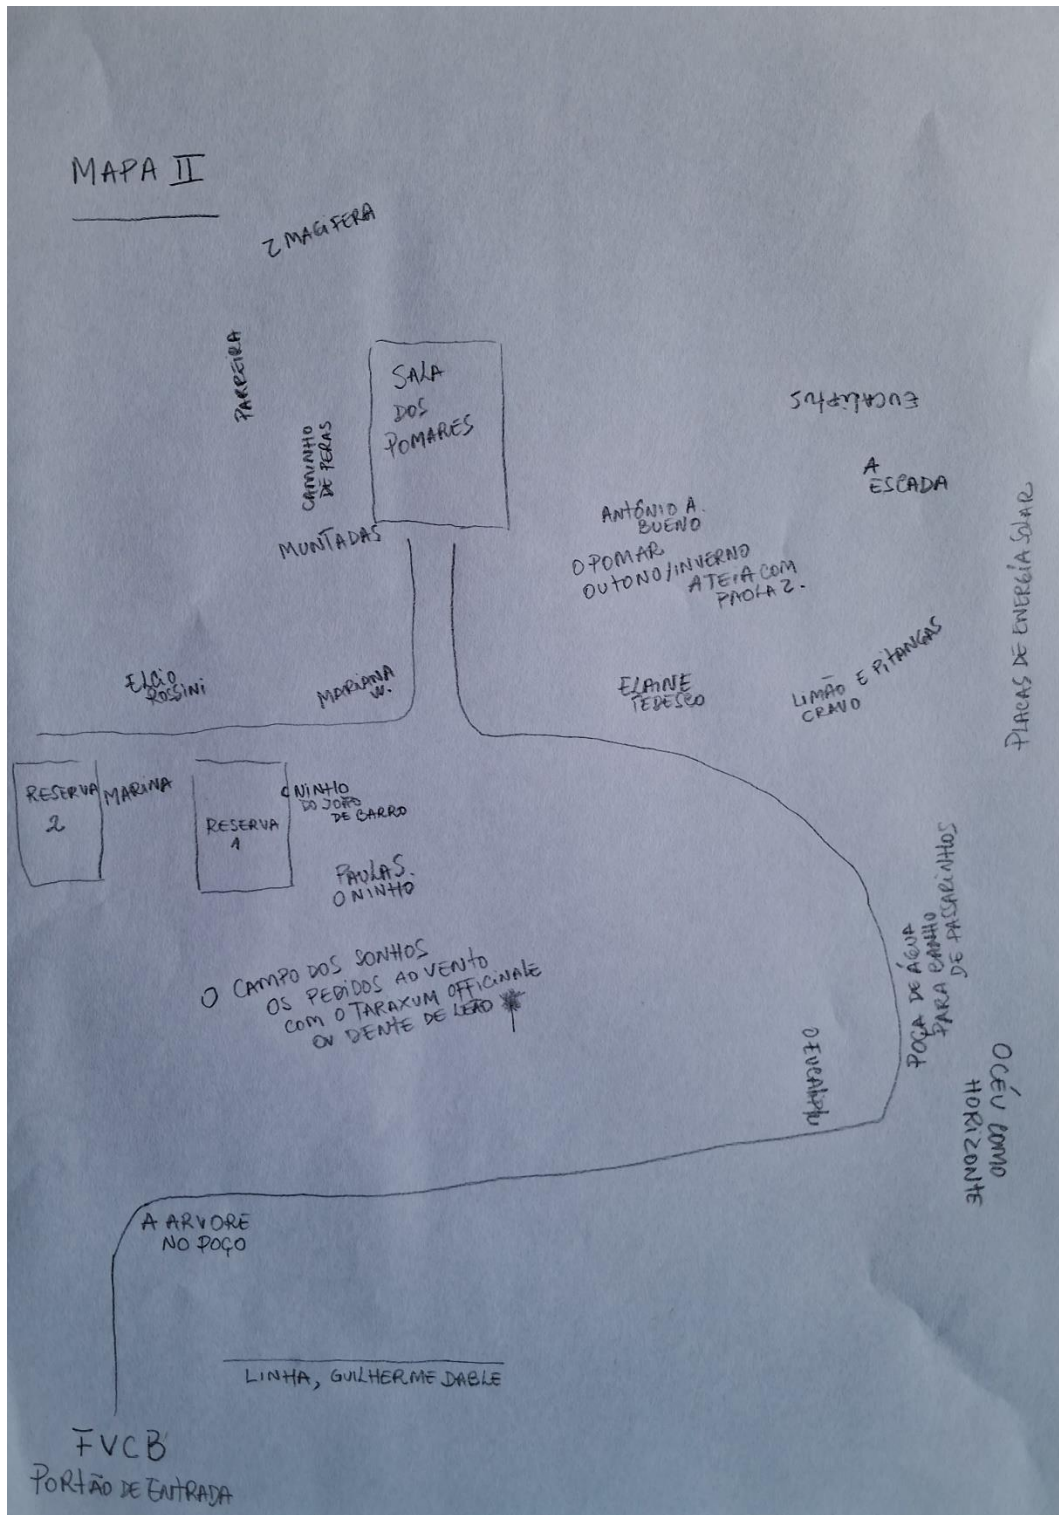 MAPA II
MAGIFERA
PARREIRA
CAMINHO
DE PERAS
SALA
DOS
POMARES
MUNTADAS
EUCALIPTUS
A
ESCADA
ANTÔNIO A.
BUENO
O POMAR
OUTONO/INVERNO
A TEIA COM
PAOLA Z.
PLACAS DE ENERGÍA SOLAR
ELCIO
ROSSINI
MARIANA
W.
ELAINE
TEDESCO
LIMÃO E PITANGAS
CRAVO
RESERVA
2
MARINA
RESERVA
1
NINHO
DO JOÃO
DE BARRO
PAULA S.
O NINHO
O CAMPO DOS SONHOS
OS PEDIDOS AO VENTO
COM O TARAXUM OFFICINALE
OU DENTE DE LEÃO
POÇA DE ÁGUA
PARA BANHO
DE PASSARINHOS
O EUCALIPTU
O CÉU COMO
HORIZONTE
A ARVORE
NO POÇO
LINHA, GUILHERME DABLE
FVCB
PORTÃO DE ENTRADA